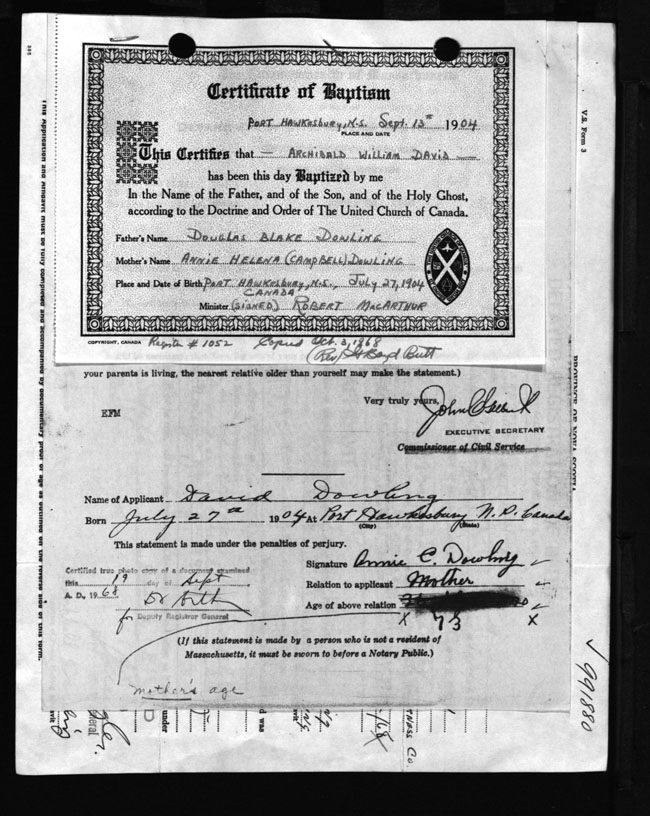 Certificate of Baptism
PORT HAWKESBURY, N.S. Sept. 13th 1904
PLACE AND DATE
This Certifies that — ARCHIBALD WILLIAM DAVID
has been this day Baptized by me
In the Name of the Father, and of the Son, and of the Holy Ghost,
according to the Doctrine and Order of The United Church of Canada.
Father's Name DOUGLAS BLAKE DOWLING
Mother's Name ANNIE HELENA (CAMPBELL) DOWLING
Place and Date of Birth PORT HAWKESBURY, N.S., JULY 27, 1904
CANADA
Minister (SIGNED) ROBERT MACARTHUR
COPYRIGHT, CANADA Register # 1052 Copied Oct. 3, 1968
your parents is living, the nearest relative older than yourself may make the statement.)
Very truly yours,
EFM
EXECUTIVE SECRETARY
Commissioner of Civil Service
Name of Applicant David Dowling
Born July 27th 1904 At Port Hawkesbury N.S. Canada
(City) (State)
This statement is made under the penalties of perjury.
Signature Annie C. Dowling
Certified true photo copy of a document examined
this 19 day of Sept
A. D., 1968
for Deputy Registrar General
Relation to applicant Mother
Age of above relation
X 73 X
(If this statement is made by a person who is not a resident of
Massachusetts, it must be sworn to before a Notary Public.)
mother's age
V.S. Form 3
PROVINCE OF NOVA SCOTIA
991880
This Application and Affidavit must be fully completed and accompanied by documentary proof of age as outlined on the reverse side of this form.